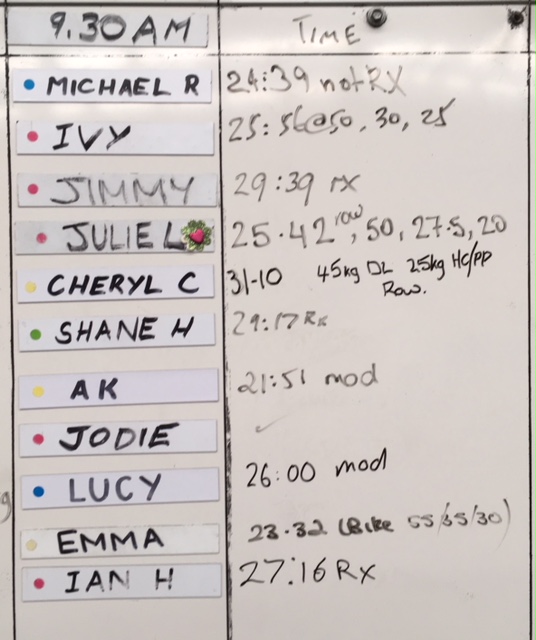 9.30AM TIME
MICHAEL R 24:39 not RX
IVY 25:56@50, 30, 25
JIMMY 29:39 rx
JULIE L 25.42 row, 50, 27.5, 20
CHERYL C 31-10 45kg DL 25kg HC/PP
Row.
SHANE H 29:17 Rx
AK 21:51 mod
JODIE
LUCY 26:00 mod
EMMA 23.32 (Bike 55/35/30)
IAN H 27:16 RX